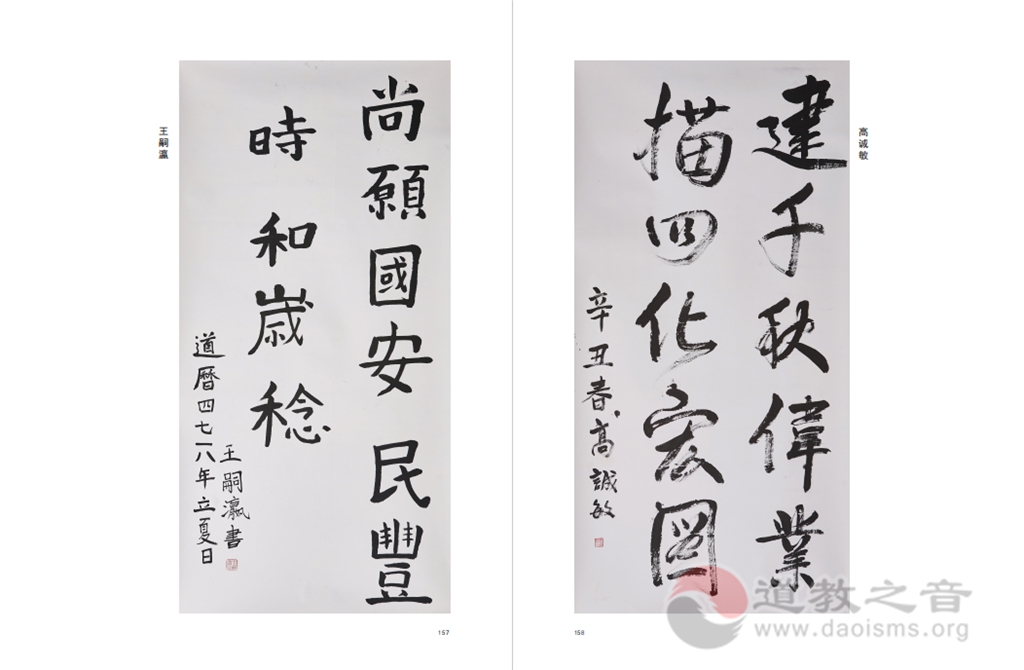 王嗣瀛
尚願國安民豐
時和歲稔
道曆四七一八年立夏日
王嗣瀛書
157
高诚敏
建千秋偉業
描四化宏図
辛丑春高誠敏
158
道教之音
www.daoisms.org